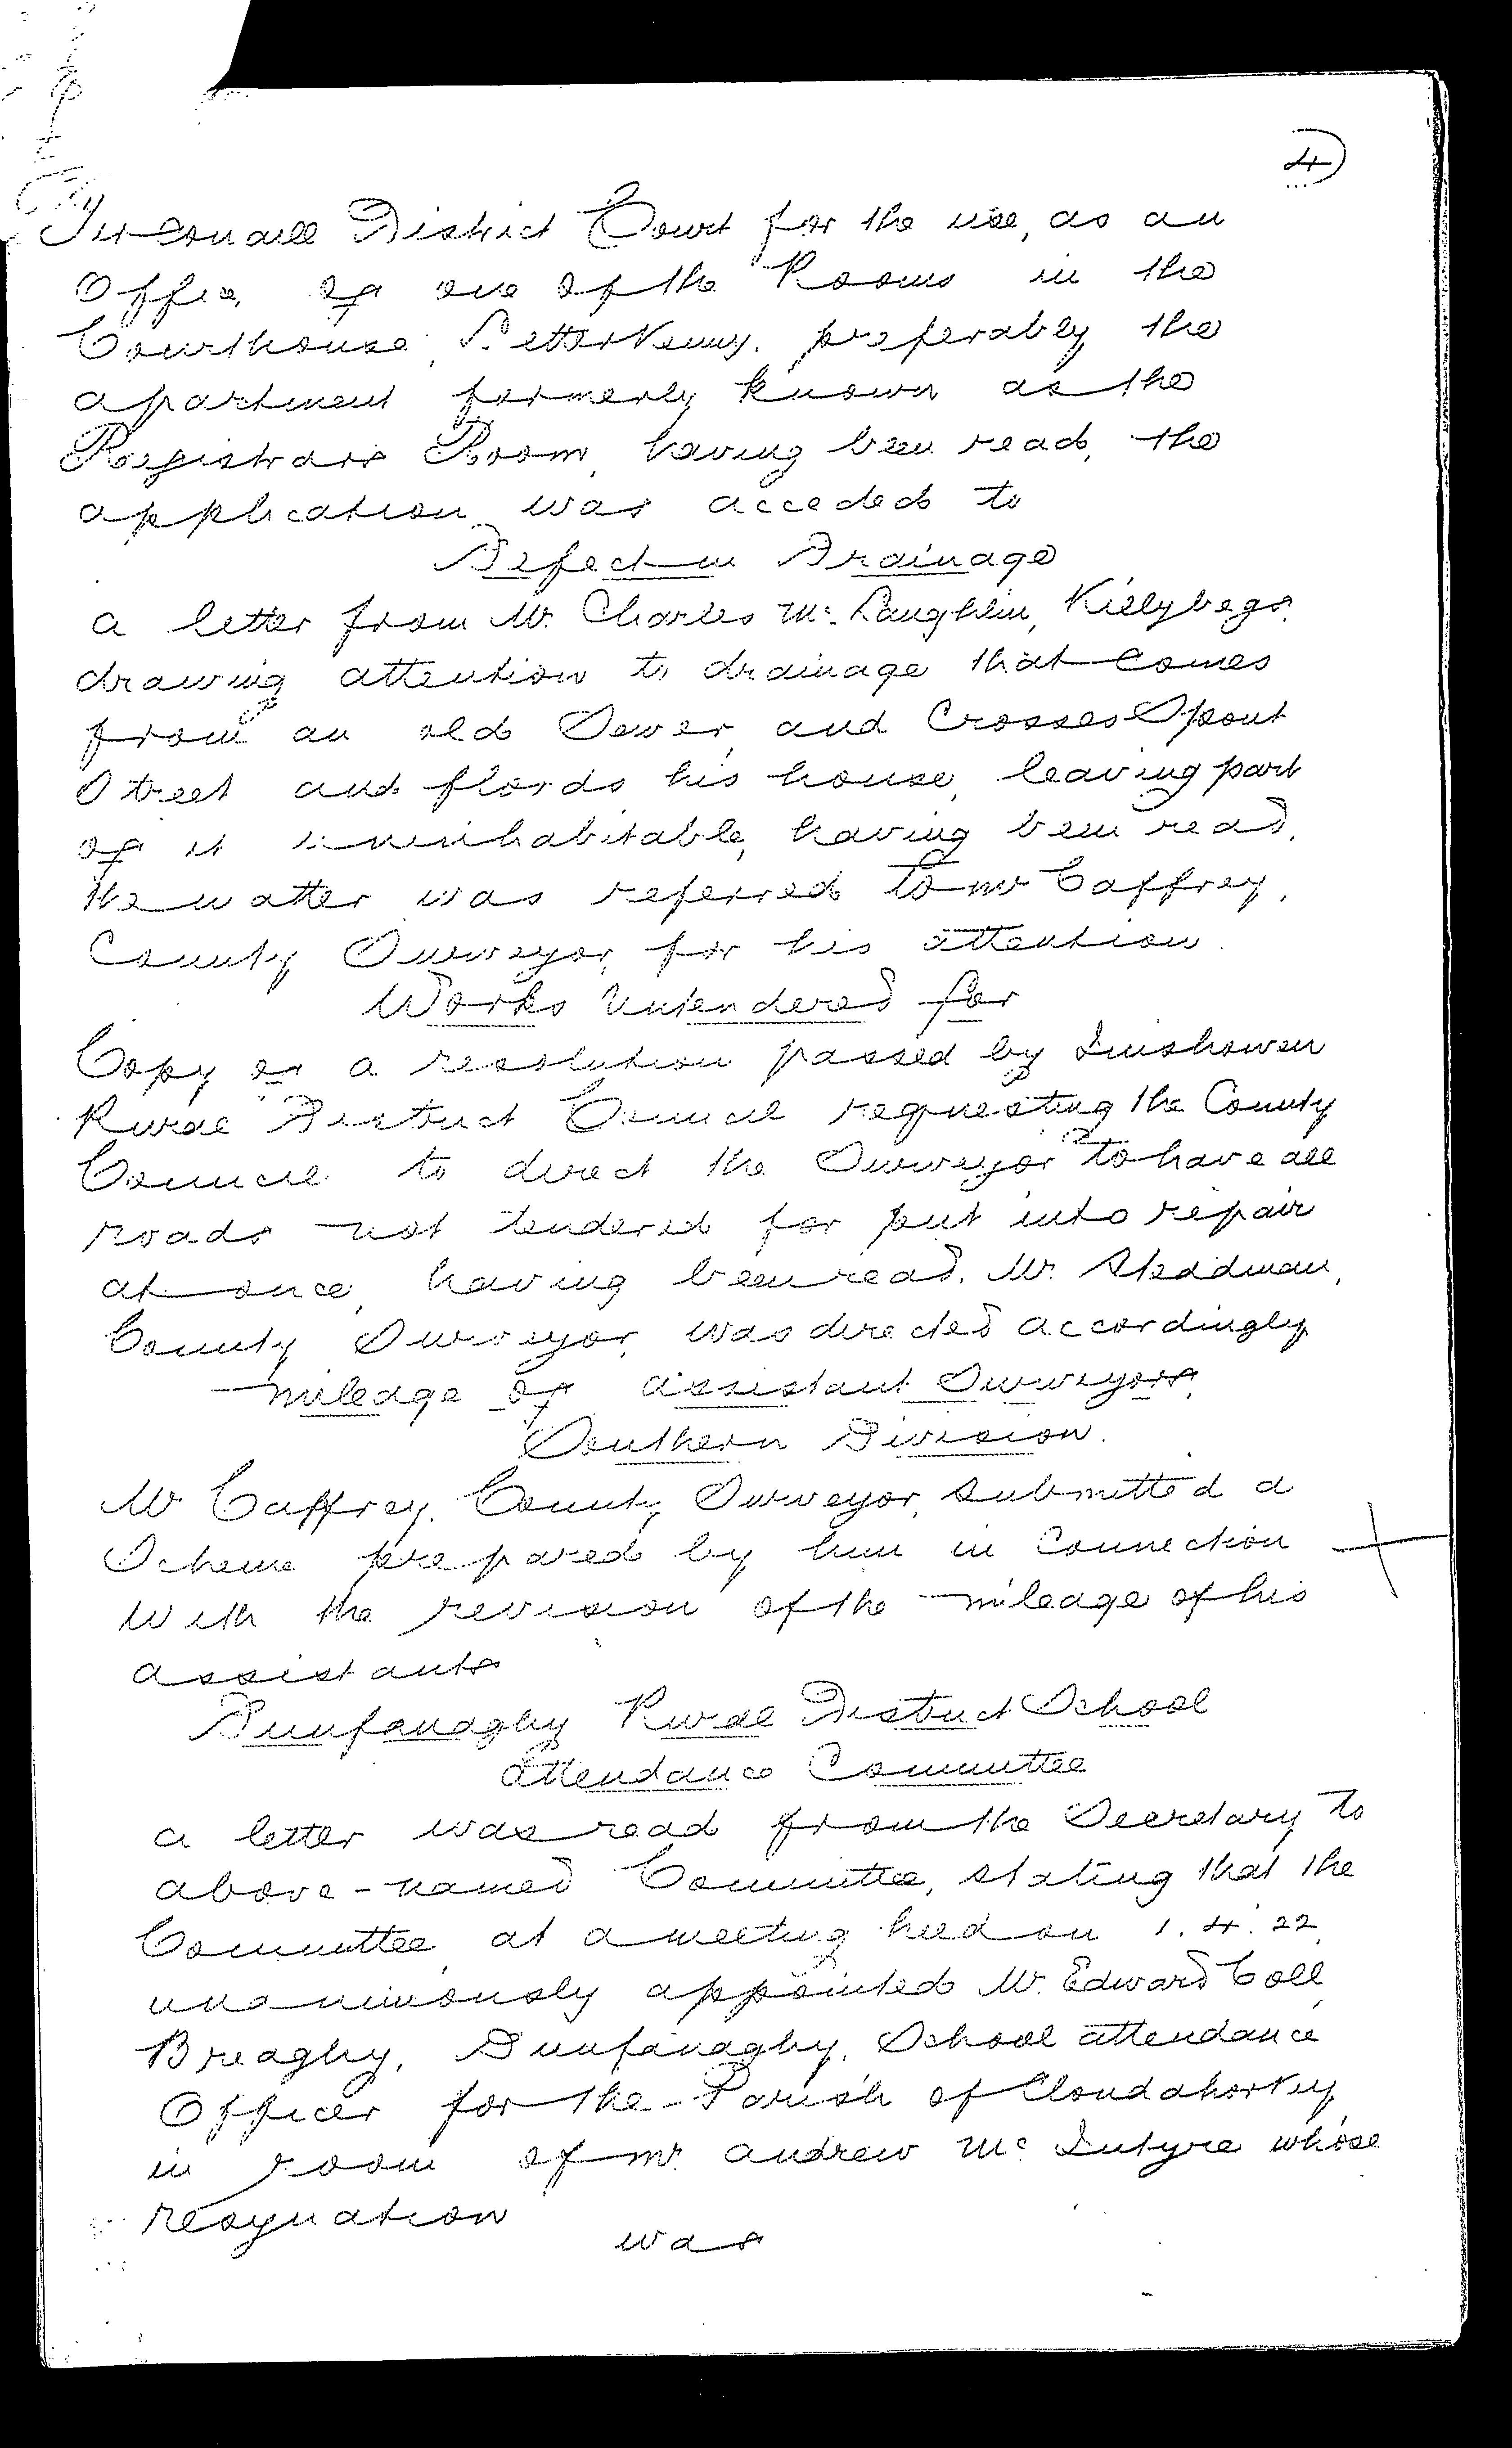 4
Tirconaill District Court for the use, as an
Office, of one of the Rooms in the
Courthouse, Letterkenny, preferably the
apartment formerly known as the
Registrars Room, having been read, the
application was acceded to
Defect in Drainage
a letter from Mr. Charles McLaughlin, Killybegs,
drawing attention to drainage that comes
from an old Sewer, and Crosses Spout
Street and floods his house, leaving part
of it uninhabitable, having been read,
the matter was referred to Mr Caffrey,
County Surveyor, for his attention.
Works Untendered for
Copy of a resolution passed by Inishowen
Rural District Council requesting the County
Council to direct the Surveyor to have all
roads not tendered for put into repair
at once, having been read, Mr. Steadman,
County Surveyor, was directed accordingly
mileage of assistant Surveyors,
Southern Division.
Mr Caffrey, County Surveyor, submitted a
Scheme prepared by him in Connection
With the revision of the mileage of his
assistants
Dunfanaghy Rural District School
attendance Committee
a letter was read from the Secretary to
above-named Committee, stating that the
Committee, at a meeting held on 1.4.22,
unanimously appointed Mr. Edward Coll,
Breaghy, Dunfanaghy, School attendance
Officer for the Parish of Cloudahorkey
in room of Mr. andrew McIntyre whose
resignation
was